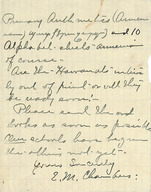 Primary Arithmetics (Armen-
ian) and 10
Alphabet sheets - Armenian
of course -
Are the entire-
ly out of print or will they
be ready soon?
Please send the
books as soon as possible
schools have begun
the others not yet -
Yours Sincerely
E. M. Chambers.